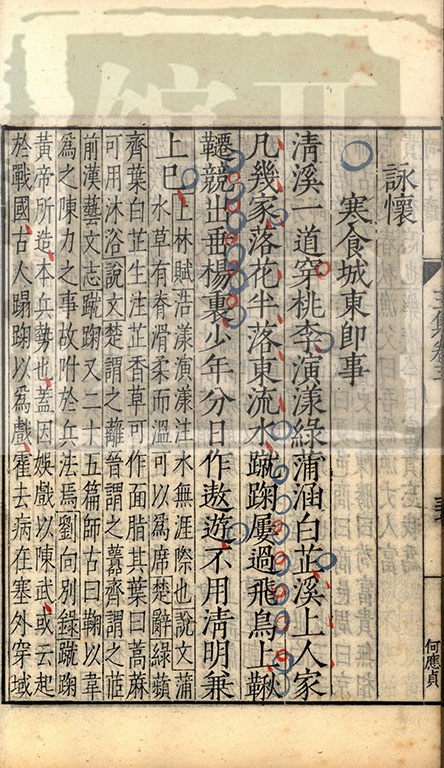 詠懷
寒食城東即事
清溪一道穿桃李演漾綠蒲涵白芷溪上人家
凡幾家落花半落東流水蹴踘屢過飛鳥上鞦
韆競出垂楊裏少年分日作遨遊不用清明兼
上巳
上林賦浩漾演漾注水無涯際也說文蒲
水草有脊滑柔而溫可以為席楚辭綠蘋
齊葉白芷生注芷香草可作面脂其葉曰蒿麻
可用沐浴說文楚謂之蘺晉謂之虈齊謂之茝
前漢藝文志蹴踘又二十五篇師古曰鞠以韋
為之陳力之事故附於兵法焉劉向別錄蹴踘
黃帝所造本兵勢也蓋因娛戲以陳武或云起
於戰國古人蹋踘以為戲霍去病在塞外穿域
何應貞